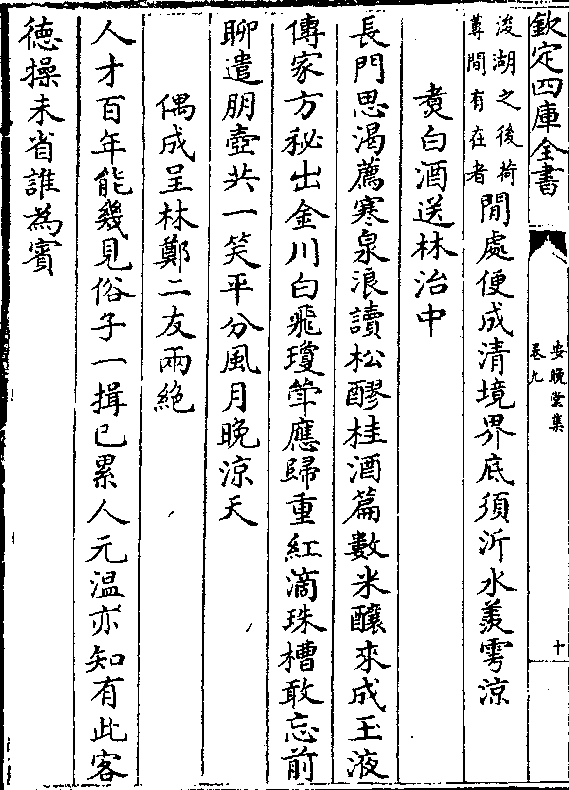 欽定四庫全書
安晚堂集
卷九
十
浚湖之後荷
蕚間有在者
閒處便成清境界底須沂水羡雩凉
煑白酒送林治中
長門思渴薦寒泉浪讀松醪桂酒篇數米釀來成玉液
傳家方秘出金川白飛瓊斝應歸重紅滴珠槽敢忘前
聊遣朋壺共一笑平分風月晚凉天
偶成呈林鄭二友兩絶
人才百年能幾見俗子一揖已累人元温亦知有此客
德操未省誰為賓